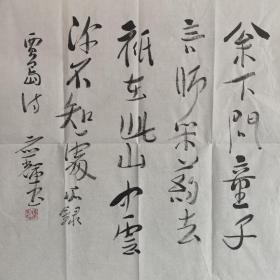 枀下問童子
言師采藥去
祇在此山中雲
深不知處 録
賈島詩